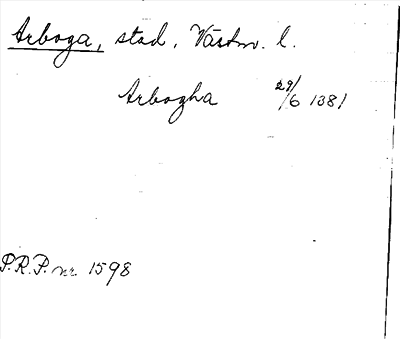 Arboga, stad, Västm. l.
Arbogha 29/6 1381
P.R.P. nr 1598